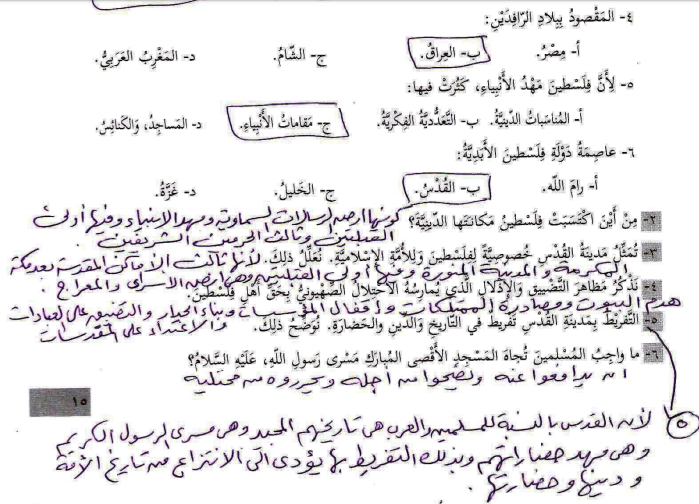 ٤- المَقْصودُ بِبِلادِ الرّافِدَيْنِ:
أ- مِصْرُ. ب- العِراقُ. ج- الشّامُ. د- المَغْرِبُ العَرَبِيُّ.
٥- لِأَنَّ فِلَسْطينَ مَهْدُ الأَنْبِياءِ، كَثُرَتْ فيها:
أ- المُناسَباتُ الدّينِيَّةُ. ب- التَّعَدُّدِيَّةُ الفِكْرِيَّةُ. ج- مَقاماتُ الأَنْبِياءِ. د- المَساجِدُ، وَالكَنائِسُ.
٦- عاصِمَةُ دَوْلَةِ فِلَسْطينَ الأَبَدِيَّةُ:
أ- رامَ اللّه. ب- القُدْسُ. ج- الخَليلُ. د- غَزَّةُ.
كونها ارض الرسالات السماوية ومهد الانبياء وفيها أولى
٢- مِنْ أَيْنَ اكْتَسَبَتْ فِلَسْطينُ مَكانَتَها الدّينِيَّةَ؟
القبلتين وثالث الحرمين الشريفين
٣- تُمَثِّلُ مَدينَةُ القُدْسِ خُصوصِيَّةً لِفِلَسْطينَ وَلِلأُمَّةِ الإِسْلامِيَّةِ. نُعَلِّلُ ذلِكَ. لأنها ثالث الأماكن المقدسة بعد مكة
المكرمة والمدينة المنورة وفيها أولى القبلتين وهي ارض الاسراء والمعراج.
٤- نَذْكُرُ مَظاهِرَ التَّضْييقِ وَالإِذْلالِ الَّذي يُمارِسُهُ الاحْتِلالُ الصُّهْيونِيُّ بِحَقِّ أَهْلِ فِلَسْطينَ.
هدم البيوت ومصادرة الممتلكات واقفال المؤسسات وبناء الجدار والتضييق على العبادات
والاعتداء على المقدسات
٥- التَّفْريطُ بِمَدينَةِ القُدْسِ تَفْريطٌ في التّاريخِ وَالدّينِ والحَضارَةِ. نُوَضِّحُ ذلِكَ.
٦- ما واجِبُ المُسْلِمينَ تُجاهَ المَسْجِدِ الأَقْصى المُبارَكِ مَسْرى رَسولِ اللّهِ، عَلَيْهِ السَّلامُ؟
ان يدافعوا عنه ويضحوا من اجله ويحرروه من محتليه
١٥
٥ لأن القدس بالنسبة للمسلمين والعرب هي تاريخهم المجيد وهي مسرى الرسول الكريم
وهي مهد حضاراتهم وبذلك التفريط بها يؤدي الى الانتزاع من تاريخ الأمة
ودينها وحضارتها.